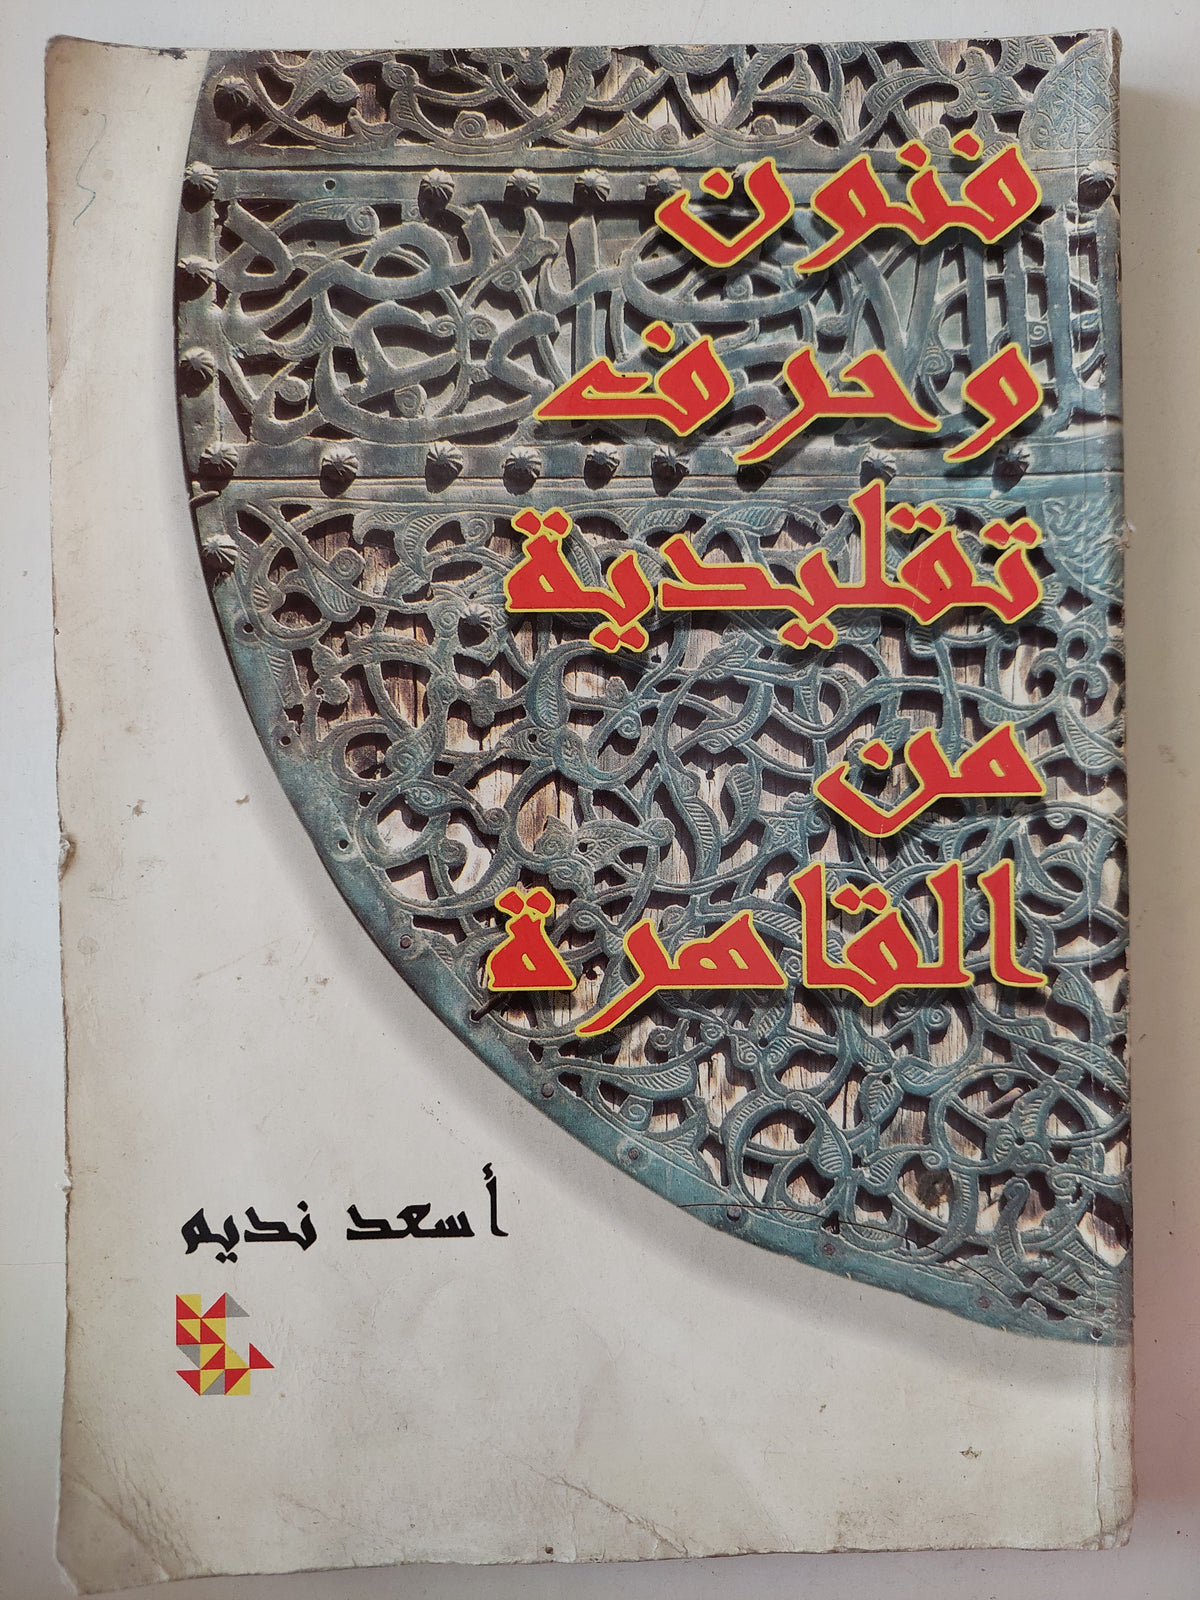 فنون
وحرف
تقليدية
من
القاهرة
أسعد نديم